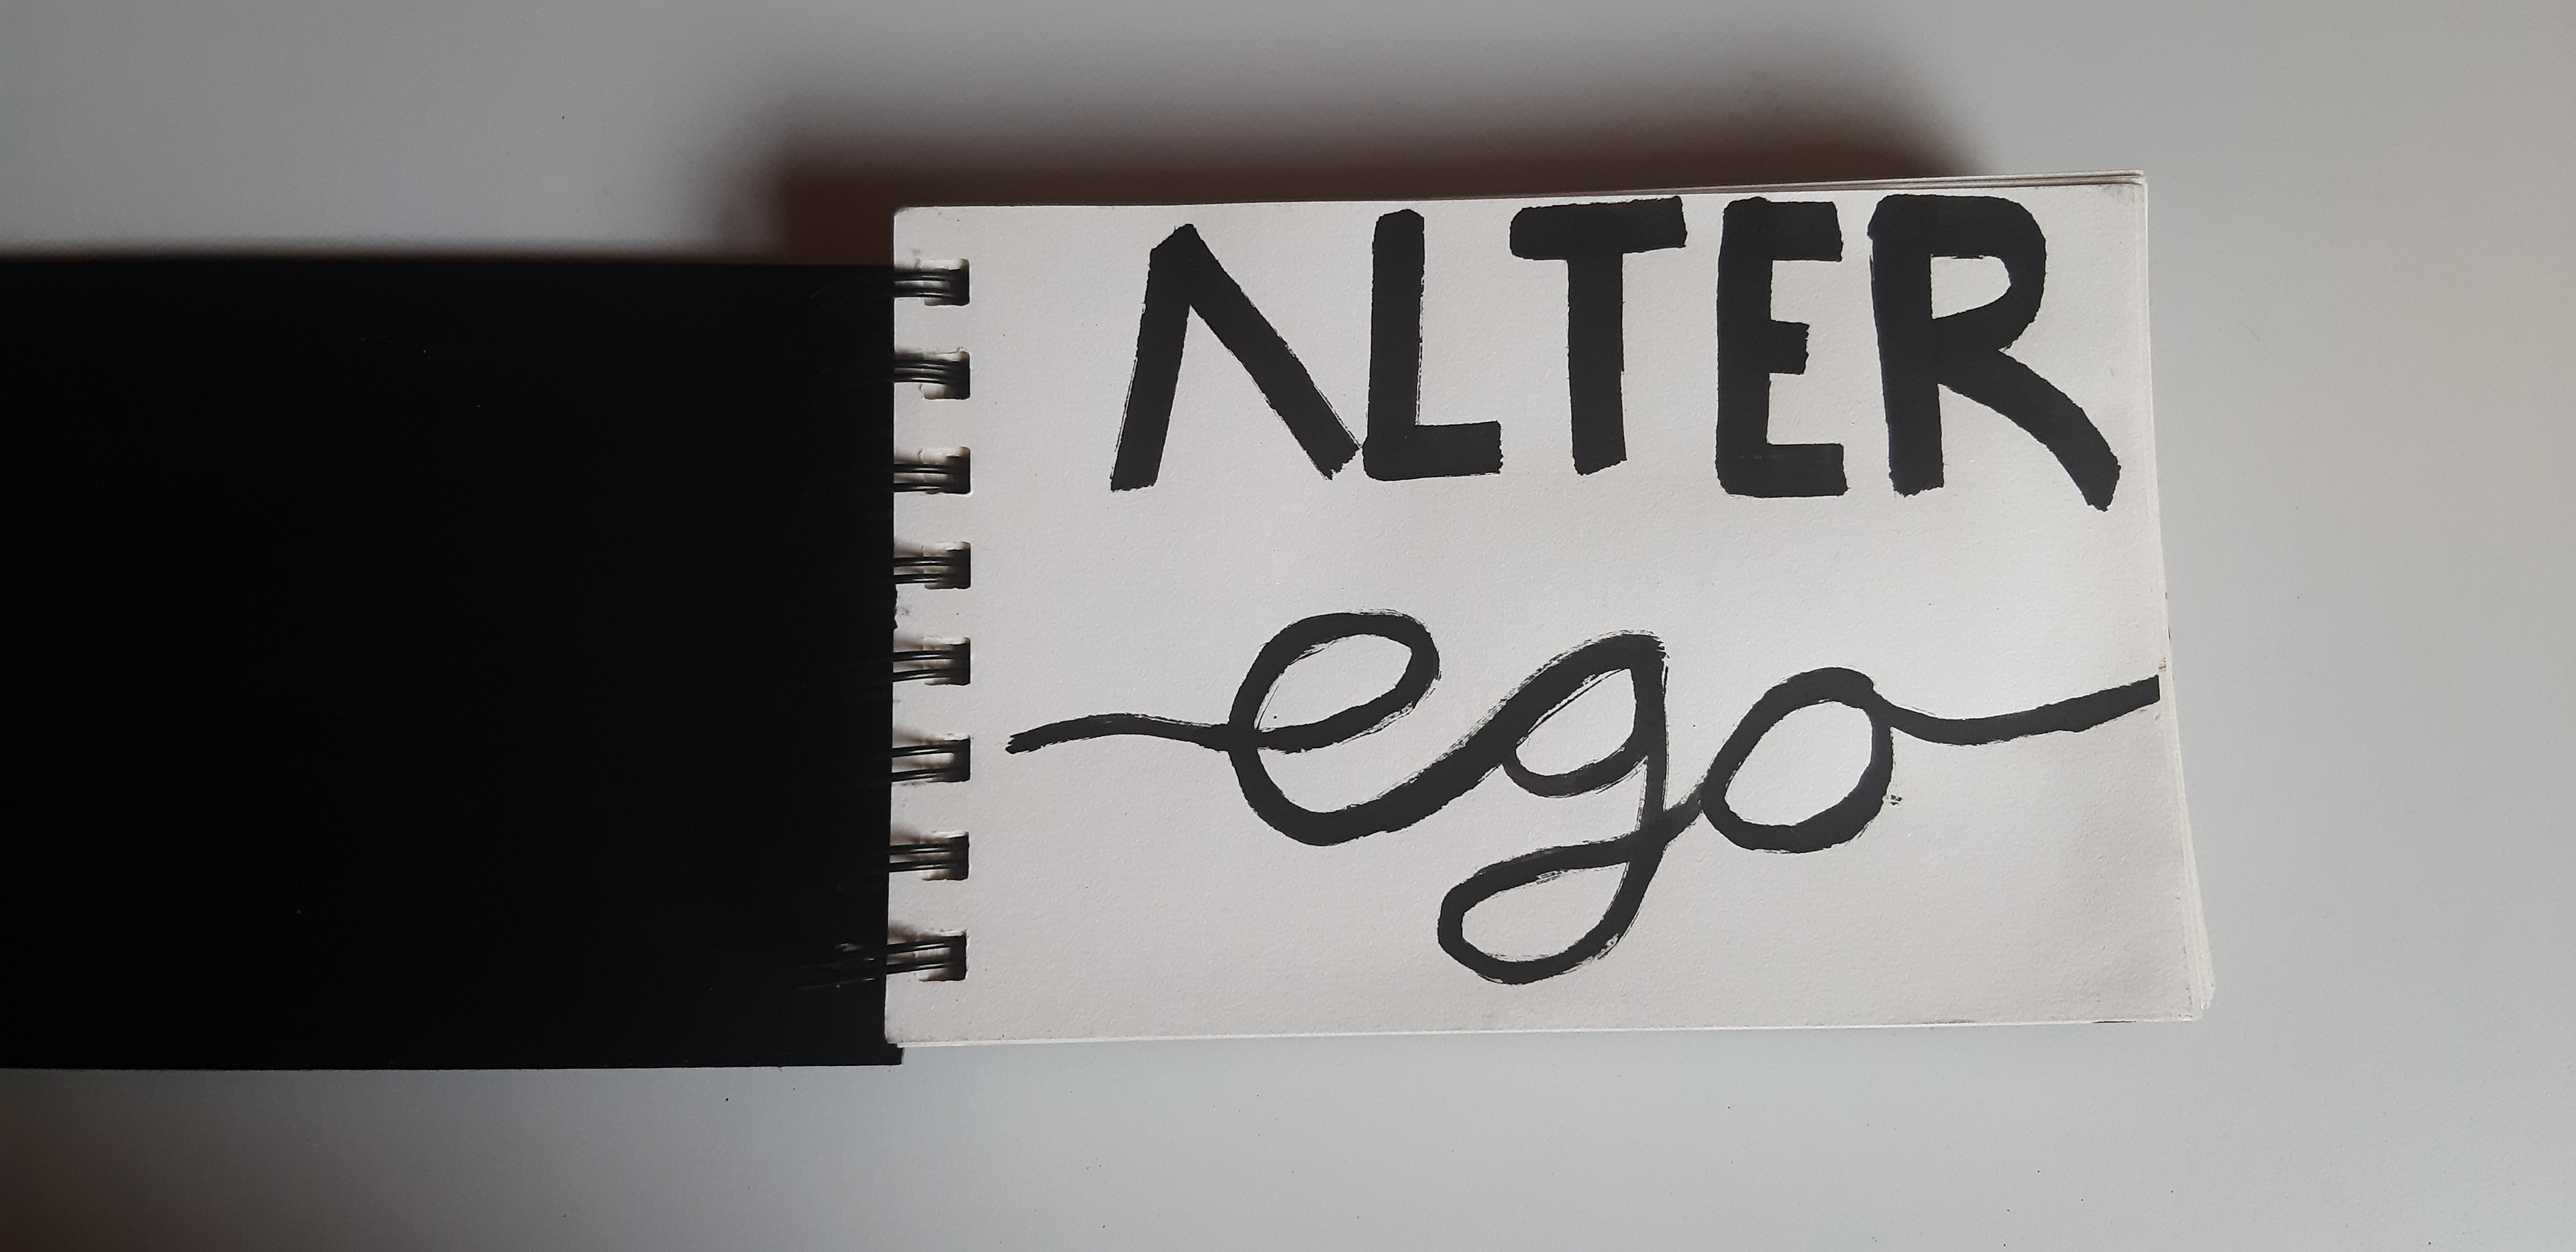 ALTER
ego